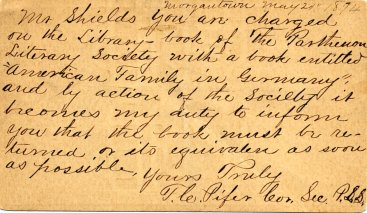 Morgantown May 21 1894
Mr Shields You are charged
on the Library-book of the Parthenon
Literary Society with a book entitled
"American Family in Germany",
and by action of the Society it
becomes my duty to inform
you that the book must be re-
turned or its equivalen as soon
as possible.
Yours Truly
T.C. Pifer Cor. Sec. P.L.S.